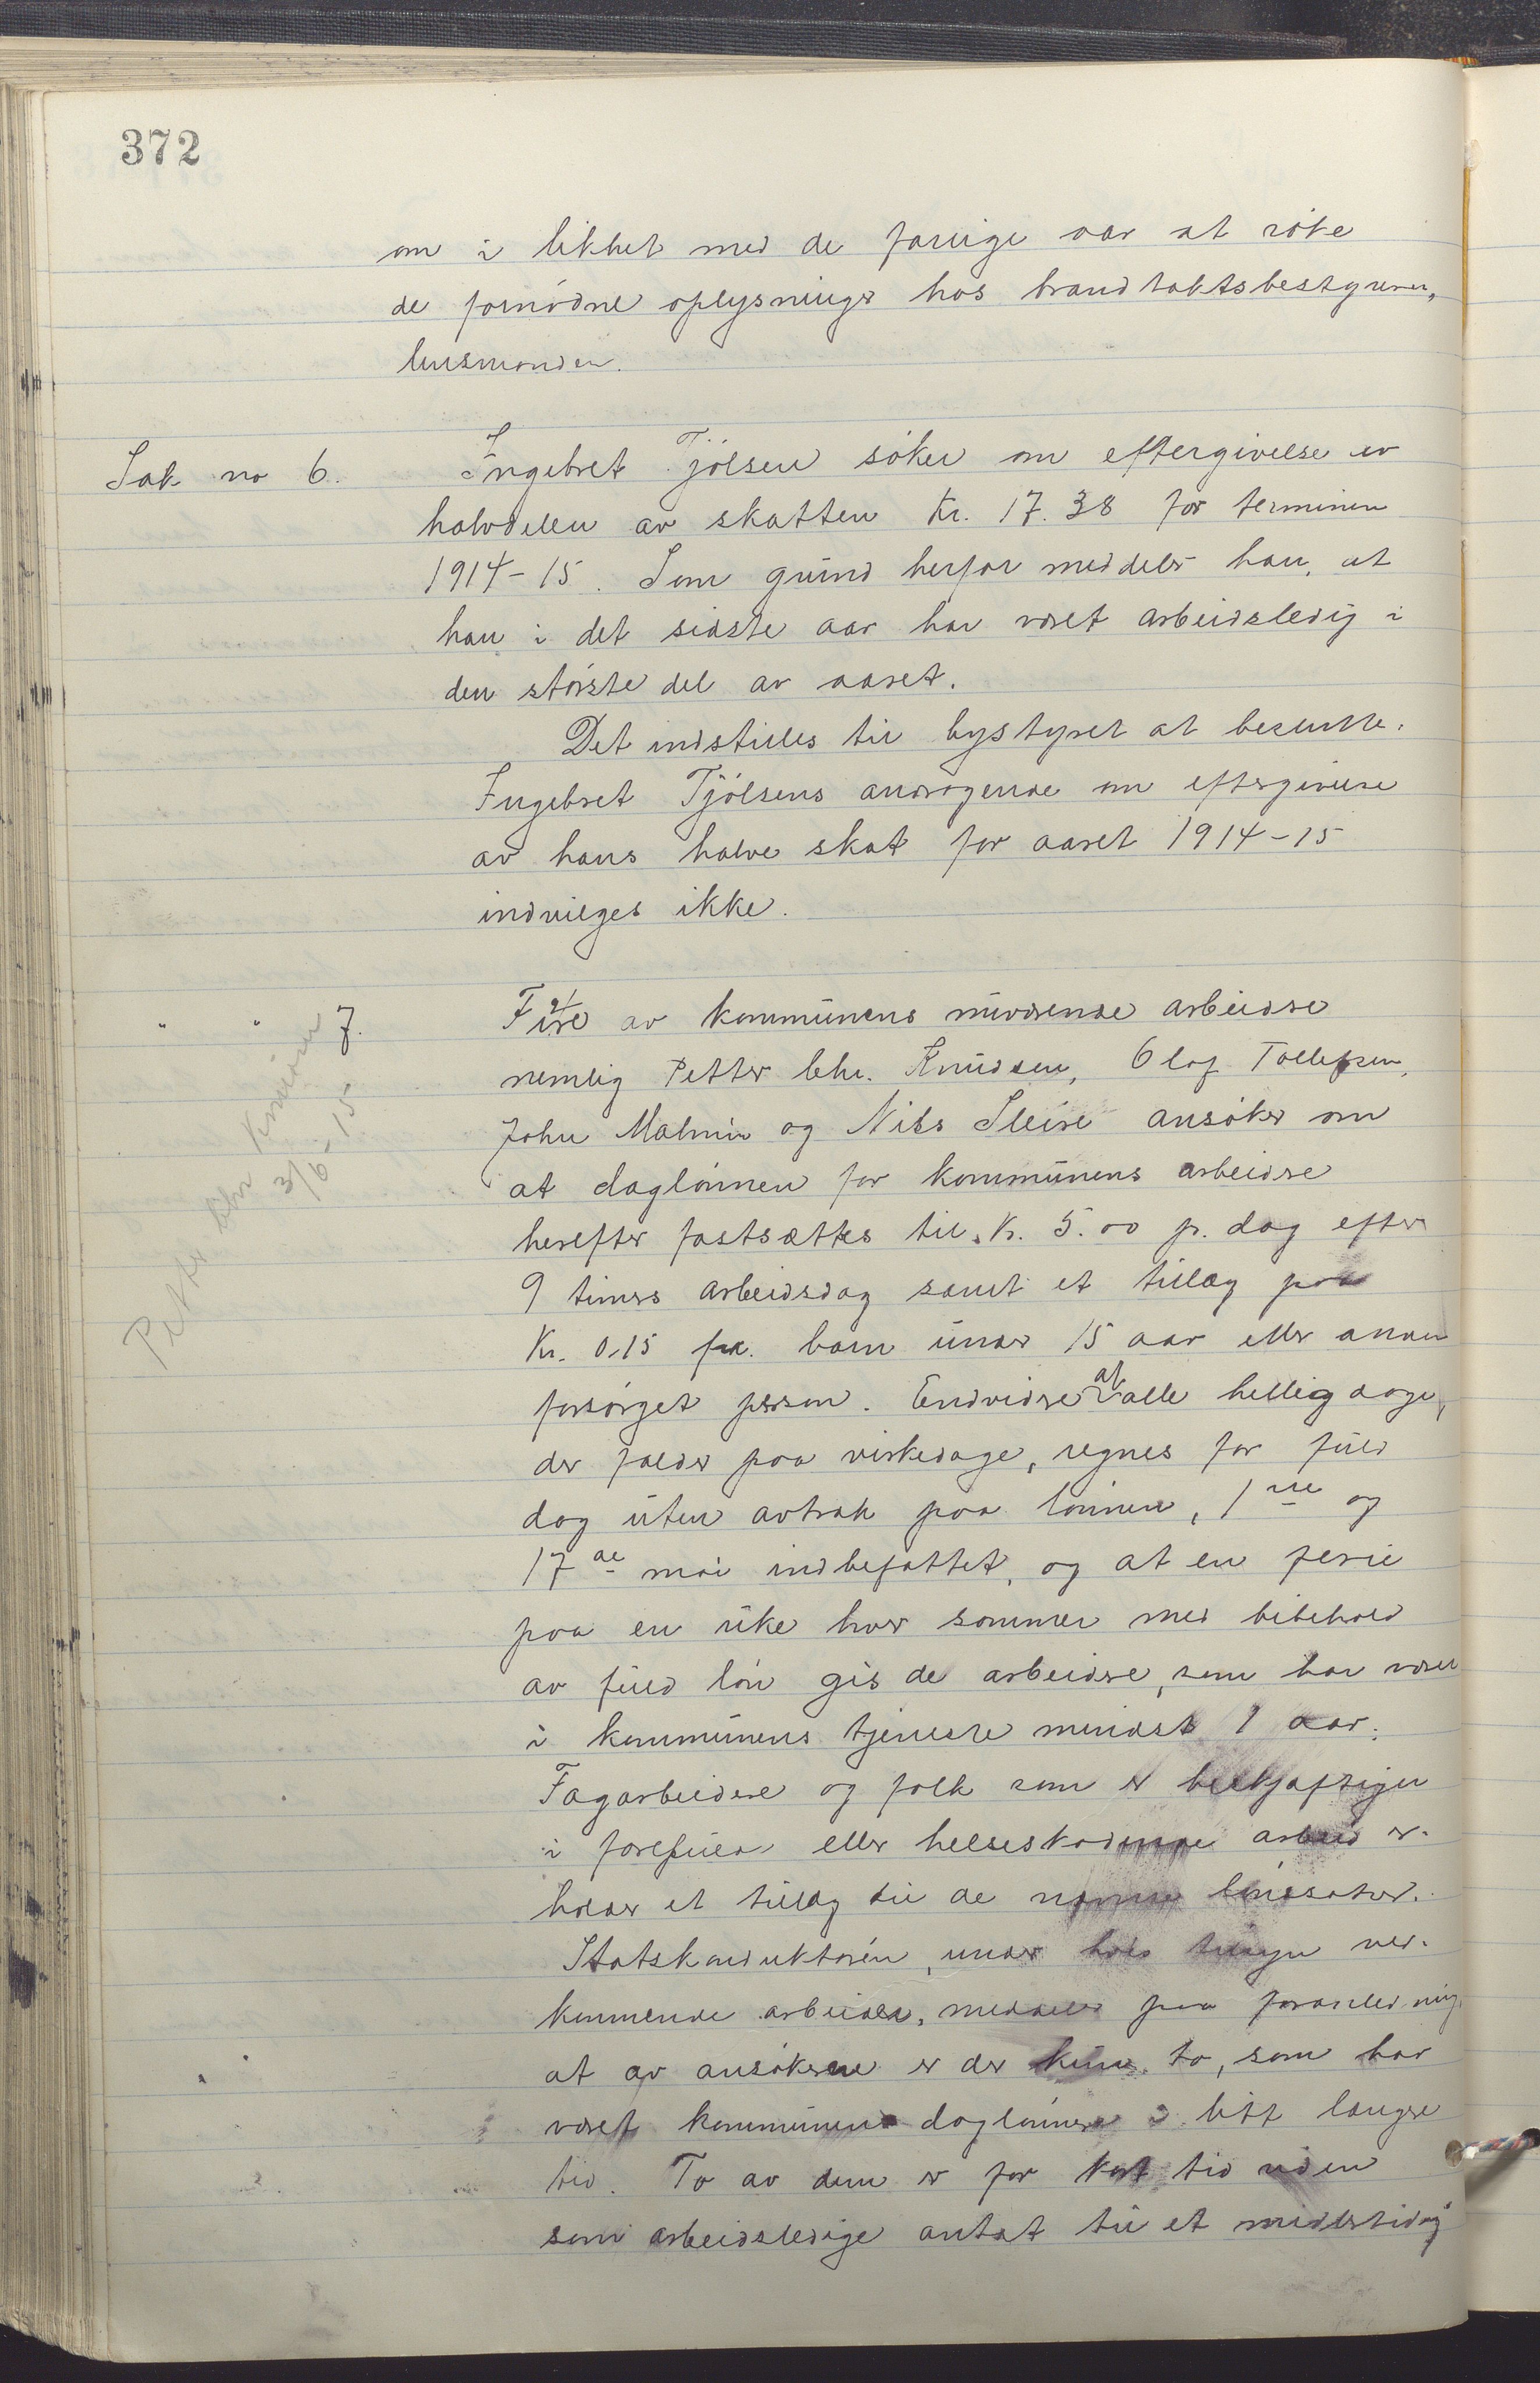 372
om i likhet med de forrige aar at söke
de fornödne oplysninger hos brandtakstbestyreren,
lensmanden.
Sak no 6. Ingebret Tjölsen söker om eftergivelse av
halvdelen av skatten Kr. 17.38 for terminen
1914-15. Som grund herfor meddeler han, at
han i det sidste aar har været arbeidsledig i
den störste del av aaret.
Det indstilles til bystyret at beslutte:
Ingebret Tjölsens andragende om eftergivelse
av hans halve skat for aaret 1914-15
indvilges ikke.
" " 7. Fire av kommunens nuværende arbeidere
nemlig Petter Chr. Knudsen, Olaf Tollefsen,
John Malmin og Nils Sleire ansöker om
at daglönnen for kommunens arbeidere
herefter fastsættes til Kr. 5.00 p. dag efter
9 timers arbeidsdag samt et tillæg paa
Kr. 0.15 pr. barn under 15 aar eller anden
forsörget person. Endvidere at alle helligdage,
der falder paa virkedage, regnes for fuld
dag uten avtrak paa lönnen, 1ste og
17de mai indbefattet, og at en ferie
paa en uke hver sommer med bibehold
av fuld lön gis de arbeidere, som har været
i kommunens tjeneste mindst 1 aar.
Fagarbeidere og folk som er beskjæftiget
i farefuld eller helseskadelige arbeid er-
holder et tillæg til de nævnte lönssatser.
Stadskonduktören, under hvis tilsyn ved-
kommende arbeider, meddeler paa foranledning
at av ansökerne er der kun to, som har
været kommunens daglönnere i litt længre
tid. To av dem er for kort tid siden
som arbeidsledige antat til et midlertidig
Petter Chr Knudsen
3/6-15